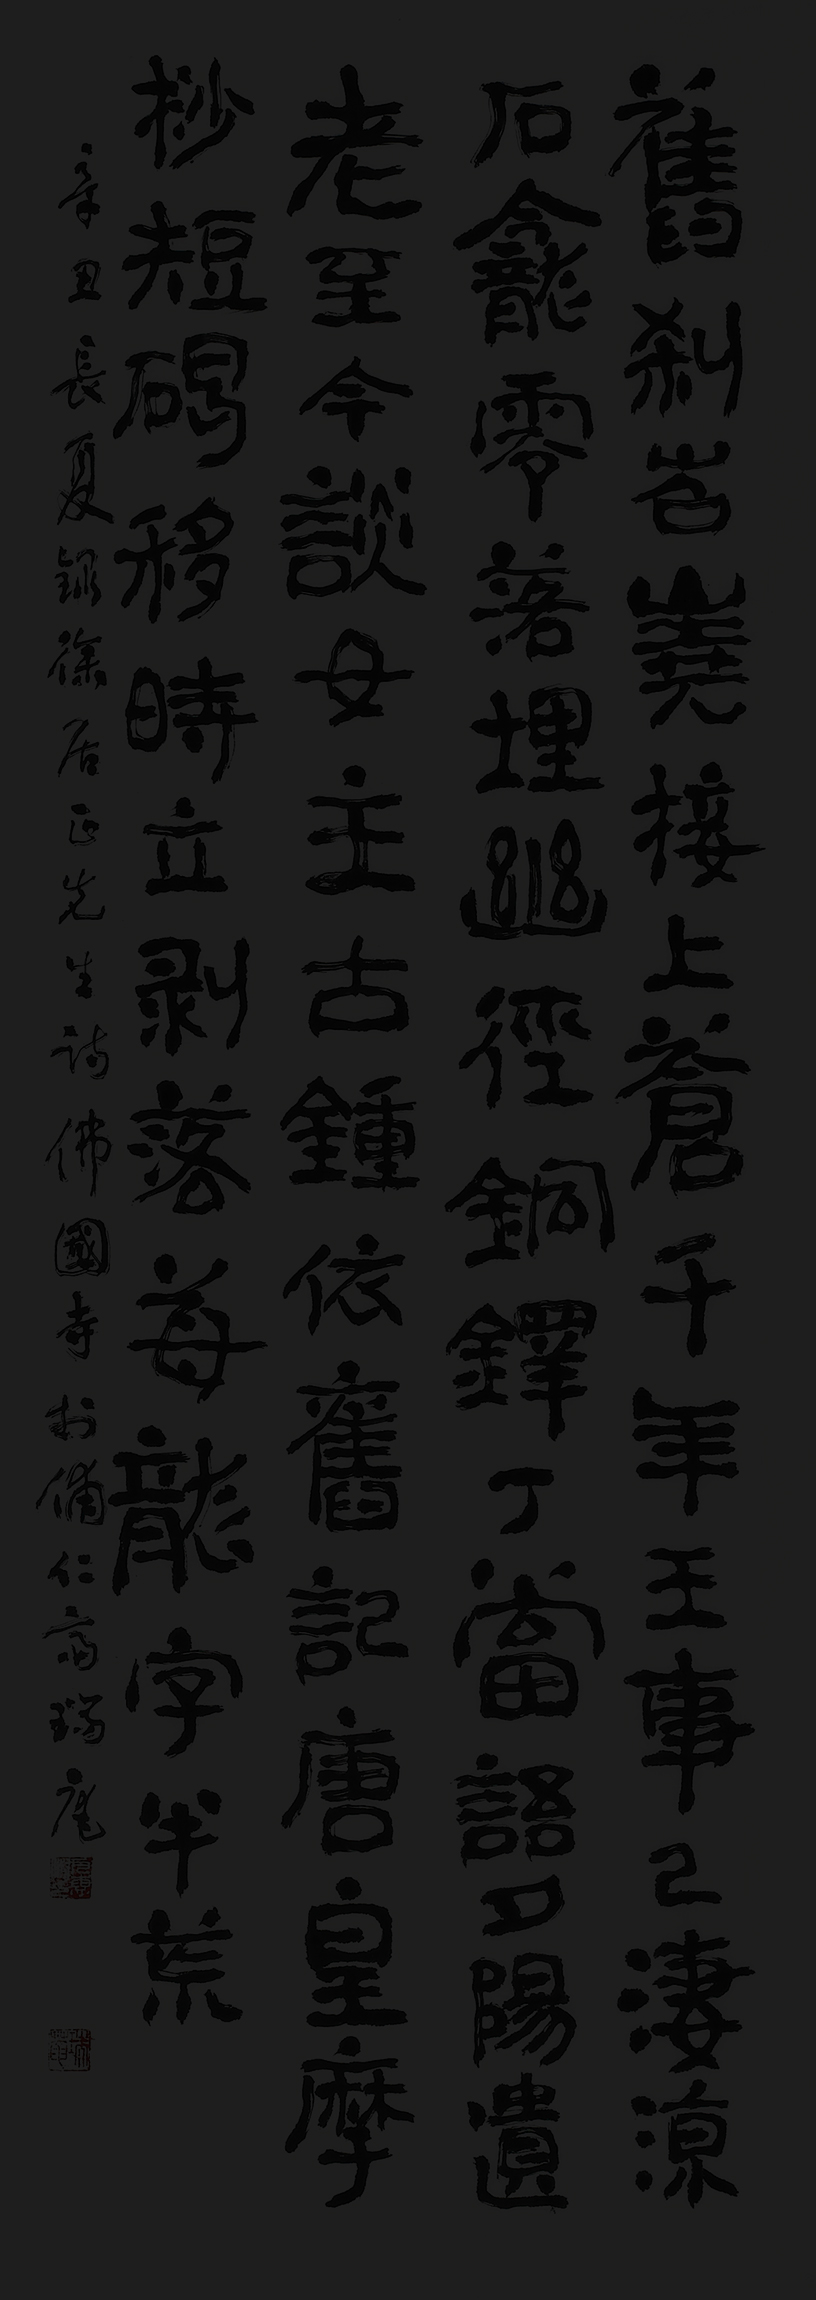 舊刹岧嶤接上蒼千年王事已淒涼
石龕零落埋幽徑銅鐸丁當語夕陽遺
老至今談女主古鍾依舊記唐皇摩
挲短碣移時立剥落莓龍字半荒
辛丑長夏録徐居正先生詩佛國寺於備仁齋瑞庵